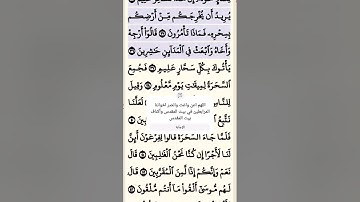 يُرِيدُ أَن يُخْرِجَكُم مِّنْ أَرْضِكُم
بِسِحْرِهِۦ فَمَاذَا تَأْمُرُونَ ۝ قَالُوٓا۟ أَرْجِهْ
وَأَخَاهُ وَٱبْعَثْ فِى ٱلْمَدَآئِنِ حَـٰشِرِينَ ۝
يَأْتُوكَ بِكُلِّ سَحَّارٍ عَلِيمٍ ۝ فَجُمِعَ
ٱلسَّحَرَةُ لِمِيقَـٰتِ يَوْمٍ مَّعْلُومٍ ۝ وَقِيلَ
لِلنَّاسِ
لَعَلَّنَا
اللهم
المرابطين في بيت المقدس وأكناف
بيت المقدس
فَلَمَّا جَآءَ ٱلسَّحَرَةُ قَالُوا۟ لِفِرْعَوْنَ أَئِنَّ
لَنَا لَأَجْرًا إِن كُنَّا نَحْنُ ٱلْغَـٰلِبِينَ ۝ قَالَ
نَعَمْ وَإِنَّكُمْ إِذًا لَّمِنَ ٱلْمُقَرَّبِينَ ۝ قَالَ
لَهُم مُّوسَىٰٓ أَلْقُوا۟ مَآ أَنتُم مُّلْقُونَ ۝